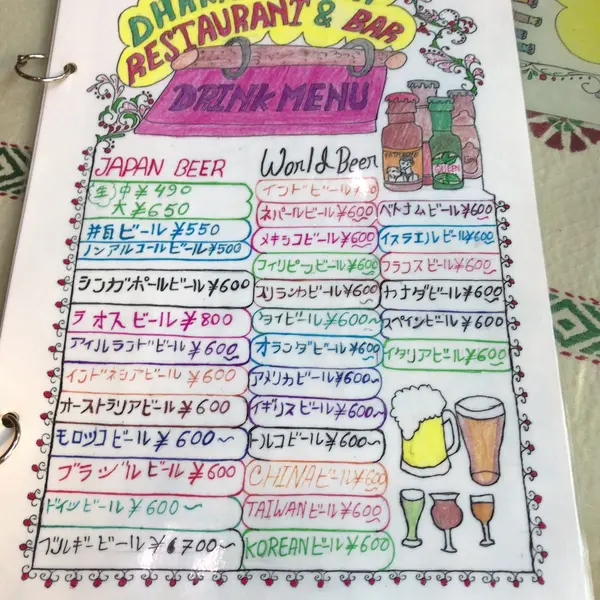 RESTAURANT & BAR
DRINK MENU
JAPAN BEER
生 中 ¥490
大 ¥650
ビール ¥550
ノンアルコールビール ¥500
シンガポールビール ¥600
ラオスビール ¥800
アイルランドビール ¥600
インドネシアビール ¥600
オーストラリアビール ¥600
モロッコビール ¥600〜
ブラジルビール ¥600
ドイツビール ¥600〜
ベルギービール ¥6700〜
World Beer
インドビール
ネパールビール ¥600
メキシコビール ¥600
フィリピンビール ¥600
スリランカビール ¥600
タイビール ¥600〜
オランダビール ¥600
アメリカビール ¥600〜
イギリスビール ¥600〜
トルコビール ¥600〜
CHINAビール ¥600
TAIWANビール ¥600
KOREANビール ¥600
ベトナムビール ¥600
イスラエルビール ¥600
フランスビール ¥600
カナダビール ¥600
スペインビール ¥600
イタリアビール ¥600